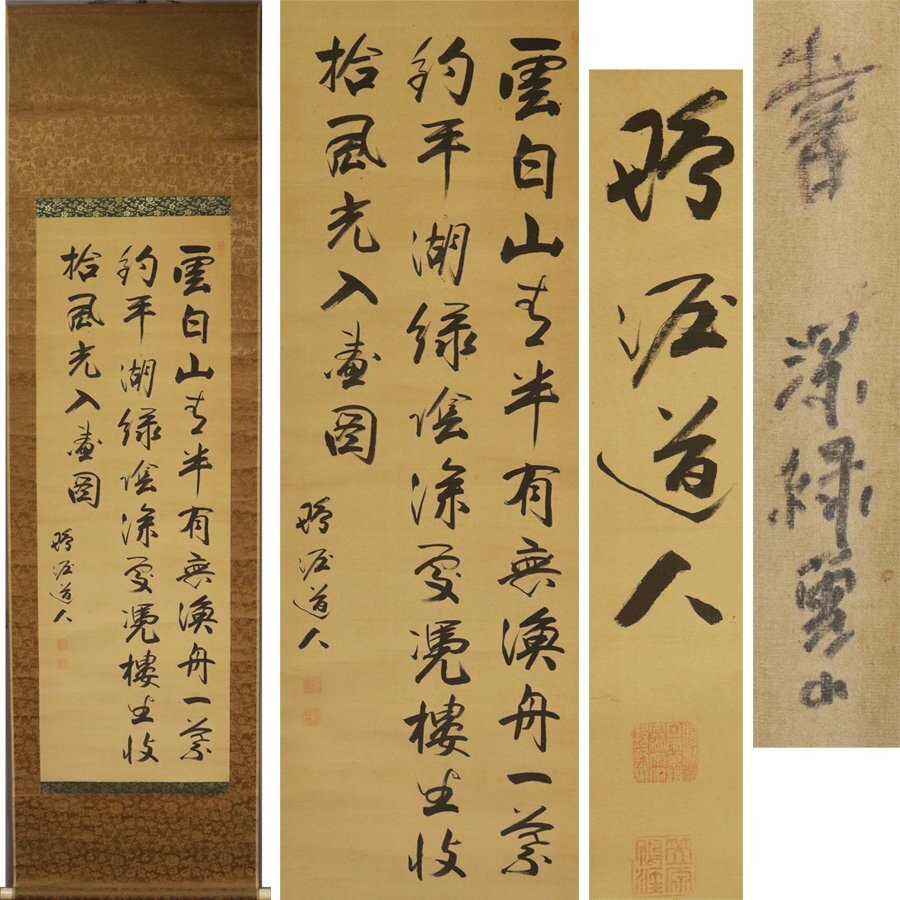 雲白山青半有無漁舟一葉
釣平湖緑陰深處憑樓坐收
拾風光入畫圖
涯道人
雲白山青半有無漁舟一葉
釣平湖緑陰深處憑樓坐收
拾風光入畫圖
涯道人
涯道人
書 深緑雲山